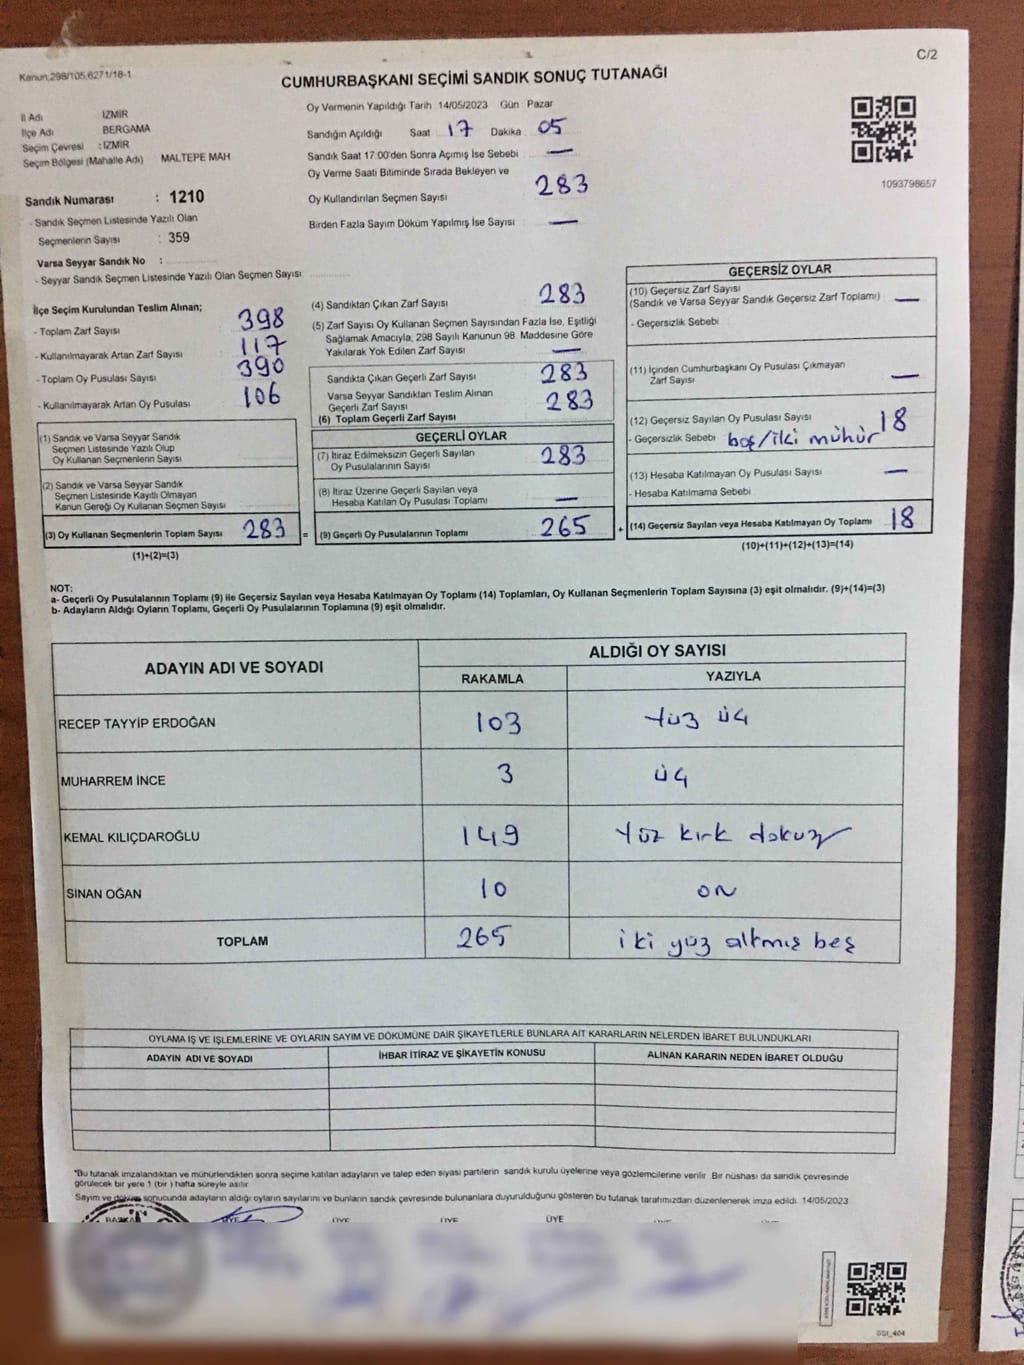 C/2
Kanun;298/105,6271/18-1
CUMHURBAŞKANI SEÇİMİ SANDIK SONUÇ TUTANAĞI
İl Adı İZMİR
İlçe Adı BERGAMA
Seçim Çevresi : İZMİR
Seçim Bölgesi (Mahalle Adı) MALTEPE MAH
Oy Vermenin Yapıldığı Tarih 14/05/2023 Gün Pazar
Sandığın Açıldığı Saat 17 Dakika 05
Sandık Saat 17:00'den Sonra Açımış İse Sebebi : —
Oy Verme Saati Bitiminde Sırada Bekleyen ve
Oy Kullandırılan Seçmen Sayısı 283
Birden Fazla Sayım Döküm Yapılmış İse Sayısı : —
1093798657
Sandık Numarası : 1210
- Sandık Seçmen Listesinde Yazılı Olan
Seçmenlerin Sayısı : 359
Varsa Seyyar Sandık No :
- Seyyar Sandık Seçmen Listesinde Yazılı Olan Seçmen Sayısı:
İlçe Seçim Kurulundan Teslim Alınan;
- Toplam Zarf Sayısı 398
- Kullanılmayarak Artan Zarf Sayısı 117
- Toplam Oy Pusulası Sayısı 390
- Kullanılmayarak Artan Oy Pusulası 106
(1) Sandık ve Varsa Seyyar Sandık
Seçmen Listesinde Yazılı Olup
Oy Kullanan Seçmenlerin Sayısı
(2) Sandık ve Varsa Seyyar Sandık
Seçmen Listesinde Kayıtlı Olmayan
Kanun Gereği Oy Kullanan Seçmen Sayısı
(3) Oy Kullanan Seçmenlerin Toplam Sayısı 283 =
(1)+(2)=(3)
(4) Sandıktan Çıkan Zarf Sayısı 283
(5) Zarf Sayısı Oy Kullanan Seçmen Sayısından Fazla İse, Eşitliği
Sağlamak Amacıyla, 298 Sayılı Kanunun 98. Maddesine Göre
Yakılarak Yok Edilen Zarf Sayısı —
Sandıkta Çıkan Geçerli Zarf Sayısı 283
Varsa Seyyar Sandıktan Teslim Alınan
Geçerli Zarf Sayısı 283
(6) Toplam Geçerli Zarf Sayısı
GEÇERLİ OYLAR
(7) İtiraz Edilmeksizin Geçerli Sayılan
Oy Pusulalarının Sayısı 283
(8) İtiraz Üzerine Geçerli Sayılan veya
Hesaba Katılan Oy Pusulası Toplamı —
(9) Geçerli Oy Pusulalarının Toplamı 265 +
GEÇERSİZ OYLAR
(10) Geçersiz Zarf Sayısı
(Sandık ve Varsa Seyyar Sandık Geçersiz Zarf Toplamı) —
- Geçersizlik Sebebi
(11) İçinden Cumhurbaşkanı Oy Pusulası Çıkmayan
Zarf Sayısı —
(12) Geçersiz Sayılan Oy Pusulası Sayısı 18
- Geçersizlik Sebebi boş/iki mühür
(13) Hesaba Katılmayan Oy Pusulası Sayısı —
- Hesaba Katılmama Sebebi
(14) Geçersiz Sayılan veya Hesaba Katılmayan Oy Toplamı 18
(10)+(11)+(12)+(13)=(14)
NOT:
a- Geçerli Oy Pusulalarının Toplamı (9) ile Geçersiz Sayılan veya Hesaba Katılmayan Oy Toplamı (14) Toplamları, Oy Kullanan Seçmenlerin Toplam Sayısına (3) eşit olmalıdır. (9)+(14)=(3)
b- Adayların Aldığı Oyların Toplamı, Geçerli Oy Pusulalarının Toplamına (9) eşit olmalıdır.
ADAYIN ADI VE SOYADI ALDIĞI OY SAYISI
RAKAMLA YAZIYLA
RECEP TAYYİP ERDOĞAN 103 yüz üç
MUHARREM İNCE 3 üç
KEMAL KILIÇDAROĞLU 149 yüz kırk dokuz
SİNAN OĞAN 10 on
TOPLAM 265 iki yüz altmış beş
OYLAMA İŞ VE İŞLEMLERİNE VE OYLARIN SAYIM VE DÖKÜMÜNE DAİR ŞİKAYETLERLE BUNLARA AİT KARARLARIN NELERDEN İBARET BULUNDUKLARI
ADAYIN ADI VE SOYADI İHBAR İTİRAZ VE ŞİKAYETİN KONUSU ALINAN KARARIN NEDEN İBARET OLDUĞU
*Bu tutanak imzalandıktan ve mühürlendikten sonra seçime katılan adayların ve talep eden siyasi partilerin sandık kurulu üyelerine veya gözlemcilerine verilir. Bir nüshası da sandık çevresinde
görülecek bir yere 1 (bir) hafta süreyle asılır.
Sayım ve döküm sonucunda adayların aldığı oyların sayılarını ve bunların sandık çevresinde bulunanlara duyurulduğunu gösteren bu tutanak tarafımızdan düzenlenerek imza edildi. 14/05/2023
ÜYE ÜYE ÜYE ÜYE